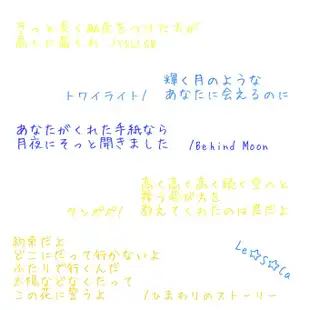 きっと長く助走をつけた方が
高くに届くわ /House
輝く月のような
トワイライト/ あなたに会えるのに
あなたがくれた手紙なら
月夜にそっと開きました /Behind Moon
高く高く高く続く空へと
舞う飛び方を
タンポポ/ 教えてくれたのは君だよ
約束だよ
どこにだって行かないよ
ふたりで行くんだ
太陽などなくたって
この花に誓うよ /ひまわりのストーリー
Le☆S☆Ca